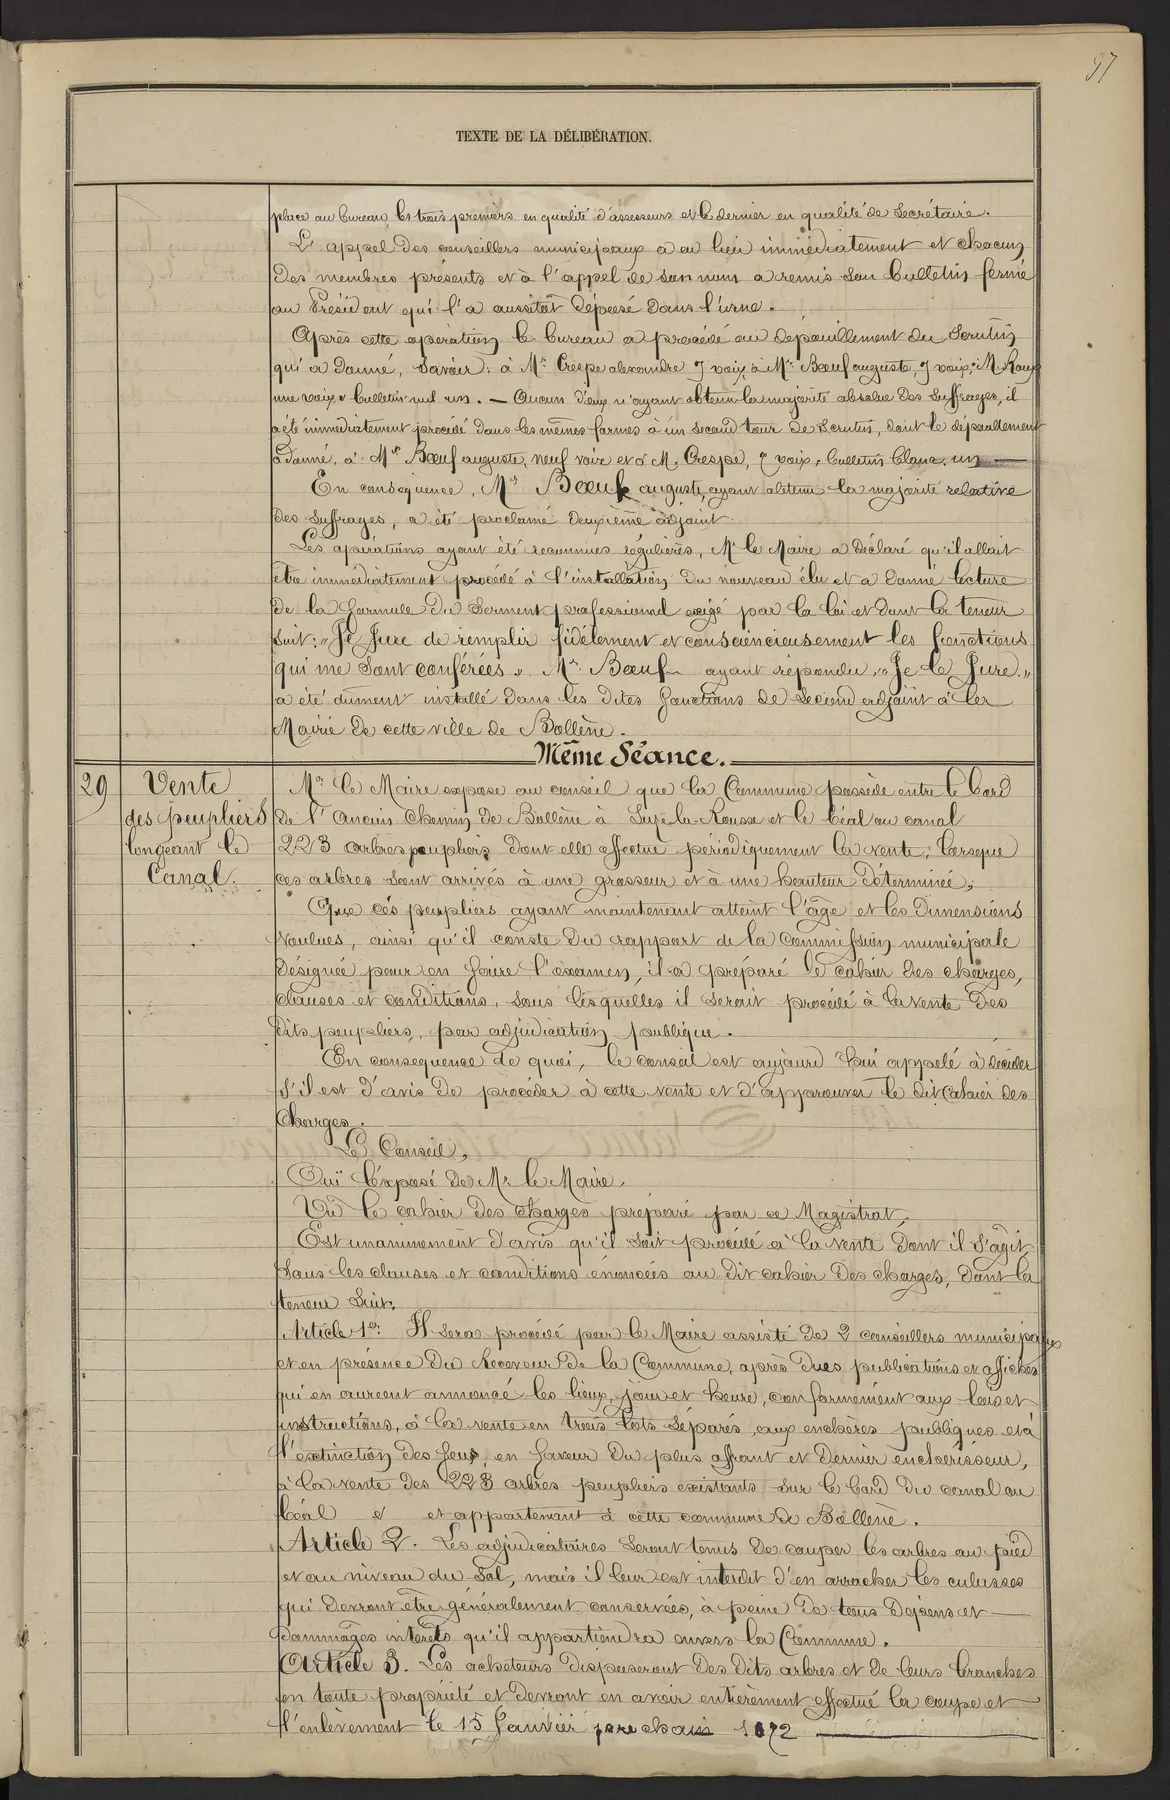 97
TEXTE DE LA DÉLIBÉRATION.
place au bureau, les trois premiers en qualité d'assesseurs et le dernier en qualité de Secrétaire.
L'appel des conseillers municipaux a eu lieu immédiatement et chacun
des membres présents et à l'appel de son nom a remis son bulletin fermé
au Président qui l'a aussitôt déposé dans l'urne.
Après cette opération le bureau a procédé au dépouillement du Scrutin
qui a donné, savoir: à Mr Crespe alexandre 7 voix, à Mr Bœuf auguste, 7 voix, Mr Roux
une voix, bulletin nul un. — Aucun d'eux n'ayant obtenu la majorité absolue des suffrages, il
a été immédiatement procédé dans les mêmes formes à un second tour de scrutin, dont le dépouillement
a donné, à Mr Bœuf auguste, neuf voix et à M. Crespe, 7 voix, bulletin blanc, un —
En conséquence, Mr Bœuf auguste, ayant obtenu la majorité relative
des suffrages, a été proclamé deuxième adjoint.
Les opérations ayant été reconnues régulières, Mr le Maire a déclaré qu'il allait
être immédiatement procédé à l'installation du nouveau élu et a donné lecture
de la formule du serment professionnel exigé par la loi et dont la teneur
suit: « Je Jure de remplir fidèlement et consciencieusement les fonctions
qui me sont conférées » Mr Bœuf ayant répondu, « Je le Jure »
a été dument installé dans les dites fonctions de second adjoint à la
Mairie de cette ville de Bollène.
Même Séance.
29
Vente
des peupliers
longeant le
Canal.
Mr le Maire expose au conseil que la Commune possède entre le bord
de l'ancien chemin de Bollène à Suze-la-Rousse et le béal ou canal
223 arbres peupliers dont elle effectue périodiquement la vente, lorsque
ces arbres sont arrivés à une grosseur et à une hauteur déterminée;
Que ces peupliers ayant maintenant atteint l'âge et les dimensions
voulues, ainsi qu'il conste du rapport de la commission municipale
désignée pour en faire l'examen, il a préparé le cahier des charges,
clauses et conditions, sous lesquelles il serait procédé à la vente des
dits peupliers, par adjudication publique.
En conséquence de quoi, le conseil est aujourd'hui appelé à décider
s'il est d'avis de procéder à cette vente et d'approuver le dit cahier des
charges.
Le Conseil,
Ouï l'exposé de Mr le Maire,
Vu le cahier des charges préparé par ce Magistrat,
Est unanimement d'avis qu'il soit procédé à la vente dont il s'agit
sous les clauses et conditions énoncées au dit cahier des charges, dont la
teneur suit:
Article 1er. Il sera procédé par le Maire assisté de 2 conseillers municipaux
et en présence du Receveur de la Commune, après dues publications et affiches
qui en auront annoncé les lieux, jour et heure, conformément aux lois et
instructions, à la vente en trois lots séparés, aux enchères publiques et à
l'extinction des feux, en faveur du plus offrant et dernier enchérisseur,
à la vente des 223 arbres peupliers existants sur le bord du canal ou
béal et appartenant à cette commune de Bollène.
Article 2. Les adjudicataires seront tenus de couper les arbres au pied
et au niveau du sol, mais il leur est interdit d'en arracher les culasses
qui devront être généralement conservées, à peine de tous dépens et —
dommages intérêts qu'il appartiendra envers la Commune.
Article 3. Les acheteurs disposeront des dits arbres et de leurs branches
en toute propriété et devront en avoir entièrement effectué la coupe et
l'enlèvement le 15 Janvier prochain 1872 —